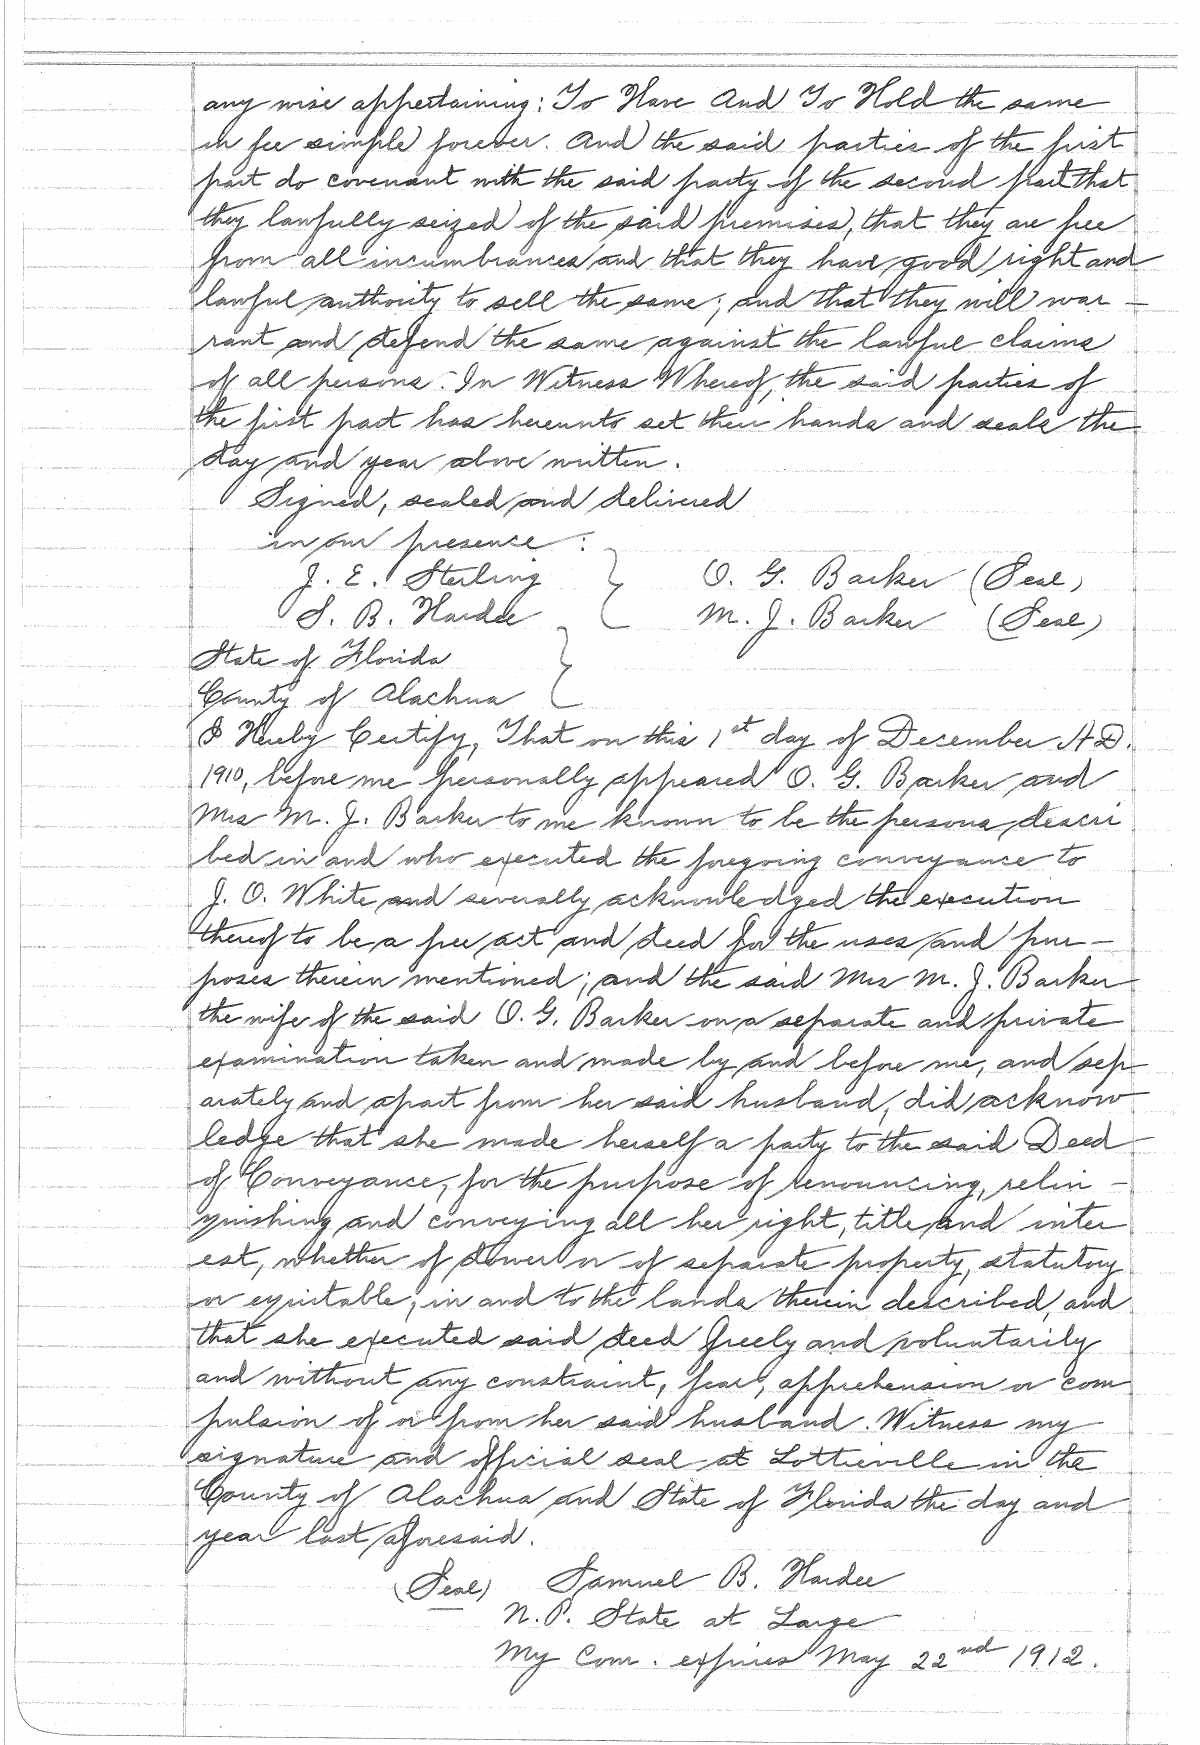 any wise appertaining: To Have And To Hold the same
in fee simple forever. And the said parties of the first
part do covenant with the said party of the second part that
they lawfully seized of the said premises, that they are free
from all incumbrances and that they have good right and
lawful authority to sell the same; and that they will war-
rant and defend the same against the lawful claims
of all persons. In Witness Whereof, the said parties of
the first part has hereunto set their hands and seals the
day and year above written.
Signed, sealed and delivered
in our presence:
J. E. Sterling } O. G. Barker (Seal)
S. B. Hardee M. J. Barker (Seal)
State of Florida }
County of Alachua
I Hereby Certify, That on this 1st day of December A.D.
1910, before me personally appeared O. G. Barker and
Mrs M. J. Barker to me known to be the persons descri
bed in and who executed the foregoing conveyance to
J. O. White and severally acknowledged the execution
thereof to be a free act and deed for the uses and pur-
poses therein mentioned; and the said Mrs M. J. Barker
the wife of the said O. G. Barker on a separate and private
examination taken and made by and before me, and sep
arately and apart from her said husband, did acknow
ledge that she made herself a party to the said Deed
of Conveyance, for the purpose of renouncing, relin-
quishing and conveying all her right, title and inter
est, whether of dower or of separate property, statutory
or equitable, in and to the lands therein described, and
that she executed said deed freely and voluntarily
and without any constraint, fear, apprehension or com
pulsion of or from her said husband. Witness my
signature and official seal at Lottieville in the
County of Alachua and State of Florida the day and
year last aforesaid.
(Seal) Samuel B. Hardee
N.P. State at Large
My Com. expires May 22nd 1912.